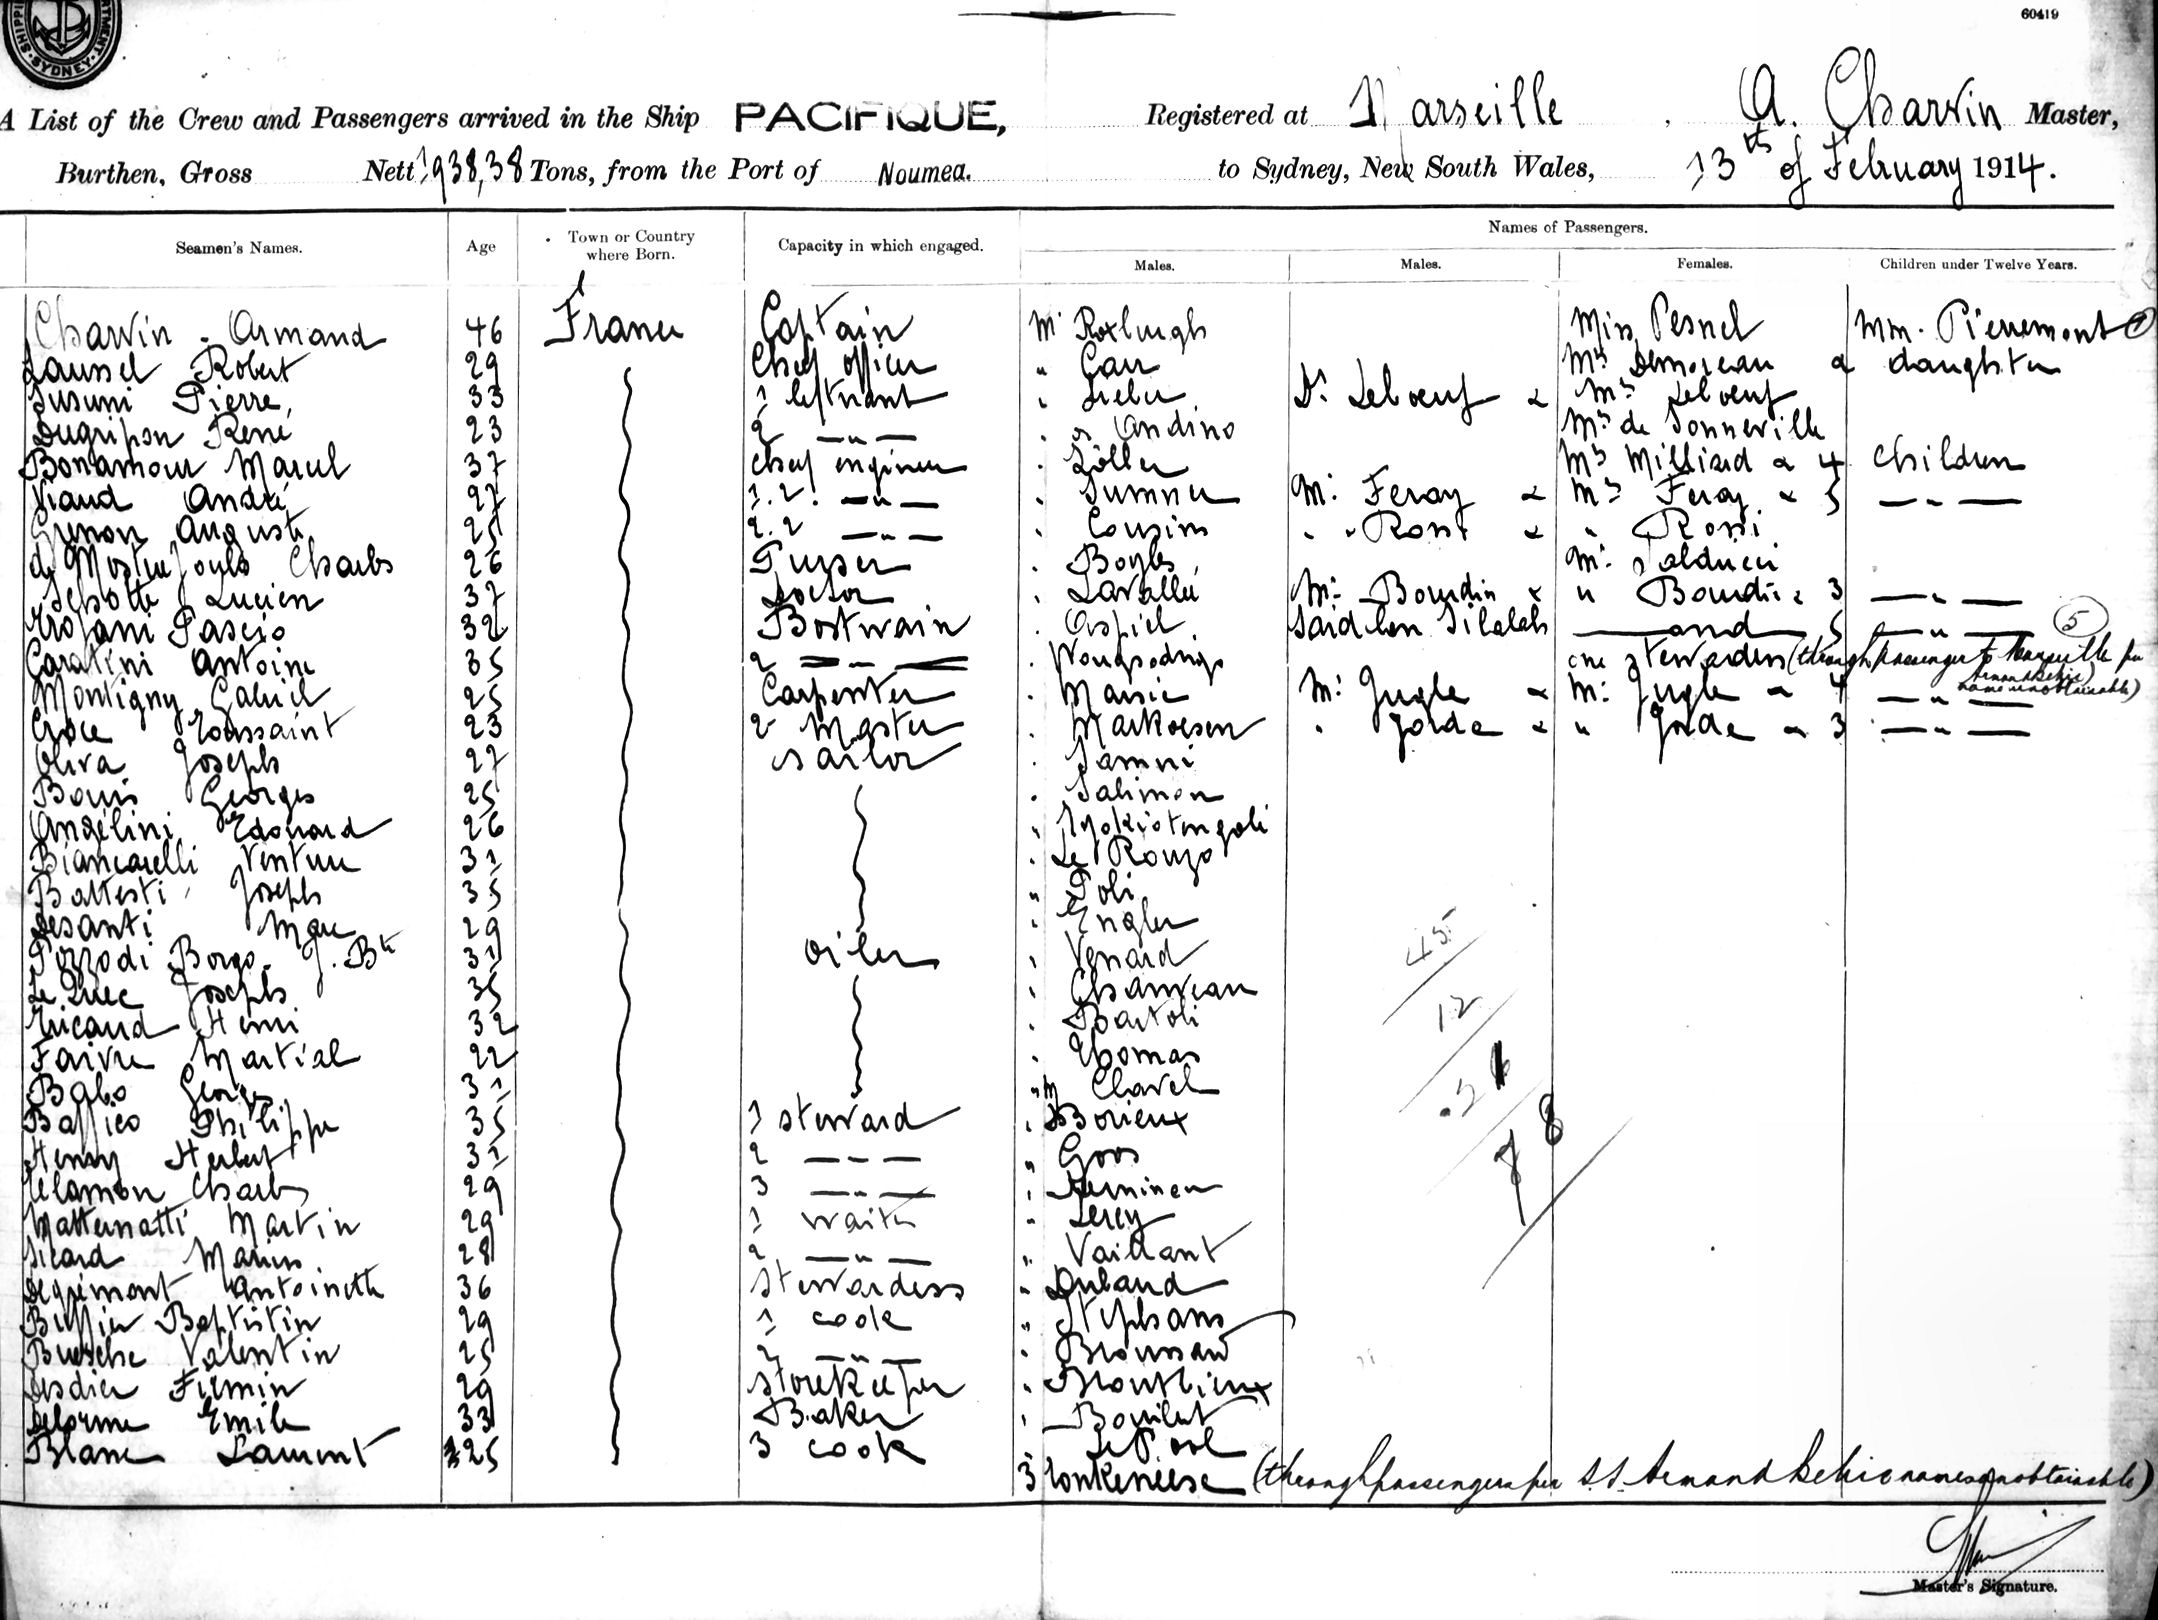 SYDNEY
60419
A List of the Crew and Passengers arrived in the Ship PACIFIQUE, Registered at Marseille, A. Charvin Master,
Burthen, Gross Nett 1938,38 Tons, from the Port of Noumea. to Sydney, New South Wales, 13th of February 1914.
Seamen's Names. Age Town or Country where Born. Capacity in which engaged. Names of Passengers.
Males. Males. Females. Children under Twelve Years.
Charvin . Armand 46 France Captain Mr Roxburgh Miss Pesnel Mm. Pierremont
Laussel Robert 29 Chef officer " Carr Mrs Demoreau & daughter
Susini Pierre, 33 1 leftnant " Lieber Dr Leboeuf & Mrs Leboeuf
Dugripon René 23 2 — " — " Andino Mrs de Sonneville
Bonamour Marcel 37 chef engineer " Zöller Mrs Milliard & 4 children
Viaud André 27 1.2. — " — " Sumner Mr Feray & Mrs Feray & 5 — " —
Grenon Auguste 25 2.2 — " — " Cousins " Rossi & " Rossi
de Charles 26 Purser " Boyle Mr
Lucien 37 Doctor " Lavallée Mr Bourdin & " Bourdin & 3 — " —
Trojani Pascio 32 Bostwain " Said ben Silalah — and — 5 — " — 5
Caratini Antoine 35 2 — " — " one stewardess (through passenger to Marseille per Armand Behic) name unobtainable)
Montigny Gabriel 25 Carpenter " Marsic Mr Jugle & Mr Jugle & 4 — " —
Toussaint 23 2 Master " Markoesen " Jorda & " Jorda & 3 — " —
Oliva Joseph 27 sailor " Samni
Bouis Georges 25 " Salimon
Angélini Edouard 26 "
Biancarelli Venture 31 " Le Rouzo
Battesti Joseph 35 " Poli
Desanti Marc 29 " Engler
Pozzodi Borgo. J. Bte 31 oiler " Venard
Le Quec Joseph 35 " Chauveau
Ricaud Henri 32 " Bartoli
Faivre Martial 22 " Thomas
Babo Georges 31 " Clavel
Baffico Philippe 35 1 steward " Borieux
Henry Herbert 31 2 — — — " Goos
Telamon Charles 29 3 — " — "
Matternatti Martin 29 1 waiter " Leroy
Sicard Marius 28 2 — " — " Vaillant
Degrémont Antoinette 36 Stewardess " Dubaud
Buffier Baptistin 29 1 cook " Stephans
Valentin 25 2 — " — " Broussard
Desdier Firmin 29 storekeeper " Monthieux
Delorme Emile 33 Baker "
Blanc Laurent 25 3 cook Le Pool
3 tonkeneese (through passengers per S.S. Armand Behic names unobtainable)
45
12
21
78
Master's Signature.